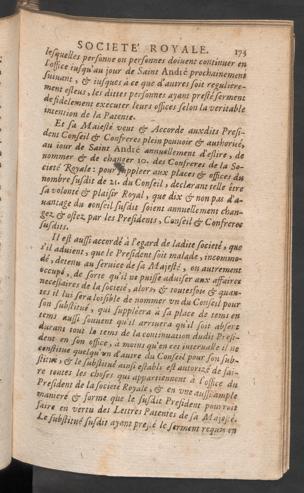 SOCIETE' ROYALE. 175
lesquelles personne ou personnes doivent continuer en
l'office iusqu'au jour de Saint André prochainement
suivant, & iusques à ce que d'autres soit regulierement
esleus, les dittes personnes ayant presté serment
de fidelement executer leurs offices selon la veritable
intention de la Patente.
Et sa Maiesté veut & Accorde auxdits Presi-
dent Conseil & Confreres plein pouvoir & authorité,
au iour de Saint André annuellement d'eslire, de
nommer & de changer 10. des Confreres de la So-
cieté Royale: pour suppleer aux places & offices du
nombre susdit de 21. du Conseil, declarant telle être
sa volonté & plaisir Royal, que dix & non pas d'a-
vantage du conseil susdit soient annuellement chan-
gez & ostez par les Presidents, Conseil & Confreres
susdits.
Il est aussi accordé à l'egard de ladite societé, que
s'il advient, que le President soit malade, incommo-
dé, detenu au service de sa Majesté, ou autrement
occupé, de sorte qu'il ne puisse adviser aux affaires
necessaires de la societé, alors & toutesfois & quan-
tes il lui sera loisible de nommer un du Conseil pour
son substitué, qui suppleera à sa place de tems en
tems aussi souvent qu'il arrivera qu'il soit absent
durant tout le tems de la continuation dudit Presi-
dent en son office, à moins qu'en cet intervalle il ne
constitue quelqu'un d'autre du Conseil pour son sub-
stitué; & le substitué ainsi establi est autorizé de fai-
re toutes les choses qui appartiennent à l'office du
President de la societé Royale, & en une aussi ample
maniere & forme que le susdit President pourroit
faire en vertu des Lettres Patentes de sa Majesté.
Le substitué susdit ayant presté le serment requis en